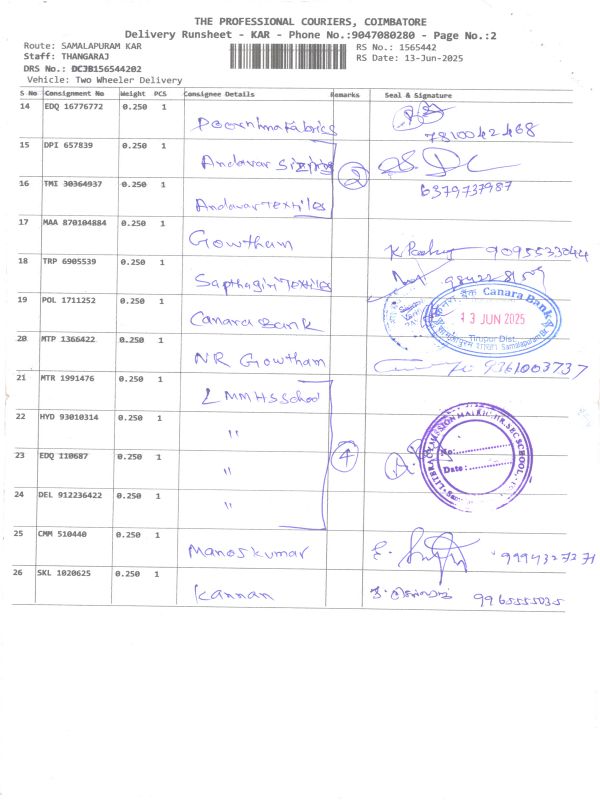 THE PROFESSIONAL COURIERS, COIMBATORE
Delivery Runsheet - KAR - Phone No.:9047080280 - Page No.:2
Route: SAMALAPURAM KAR
Staff: THANGARAJ
DRS No.: DCJB156544202
Vehicle: Two Wheeler Delivery
RS No.: 1565442
RS Date: 13-Jun-2025
S No Consignment No Weight PCS Consignee Details Remarks Seal & Signature
14 EDQ 16776772 0.250 1
7810042468
15 DPI 657839 0.250 1 Andavar Sizing
2
16 TMI 30364937 0.250 1 Andavar Textiles
6379737987
17 MAA 870104884 0.250 1 Gowtham
9095533044
18 TRP 6905539 0.250 1 Sapthagiri Textiles
19 POL 1711252 0.250 1 Canara Bank
Canara Bank
13 JUN 2025
Tirupur Dist
20 MTP 1366422 0.250 1 NR Gowtham
9361003737
21 MTR 1991476 0.250 1 LMMHS School
22 HYD 93010314 0.250 1 "
4
23 EDQ 110687 0.250 1 "
No:
Date:
24 DEL 912236422 0.250 1 "
25 CMM 510440 0.250 1 Manoskumar
26 SKL 1020625 0.250 1 Kannan
9965555035